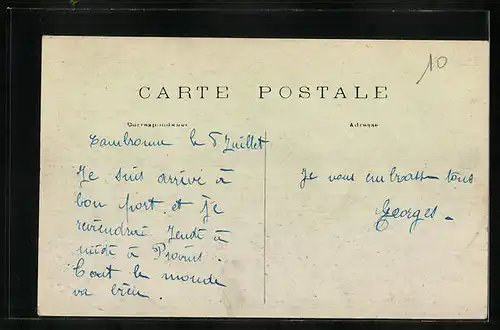 10
CARTE POSTALE
Correspondance
Adresse
le 5 Juillet
Je suis arrivé à
bon port et je
reviendrai Jeudi à
midi à Provins.
Tout le monde
va bien.
Je vous embrasse tous
Georges